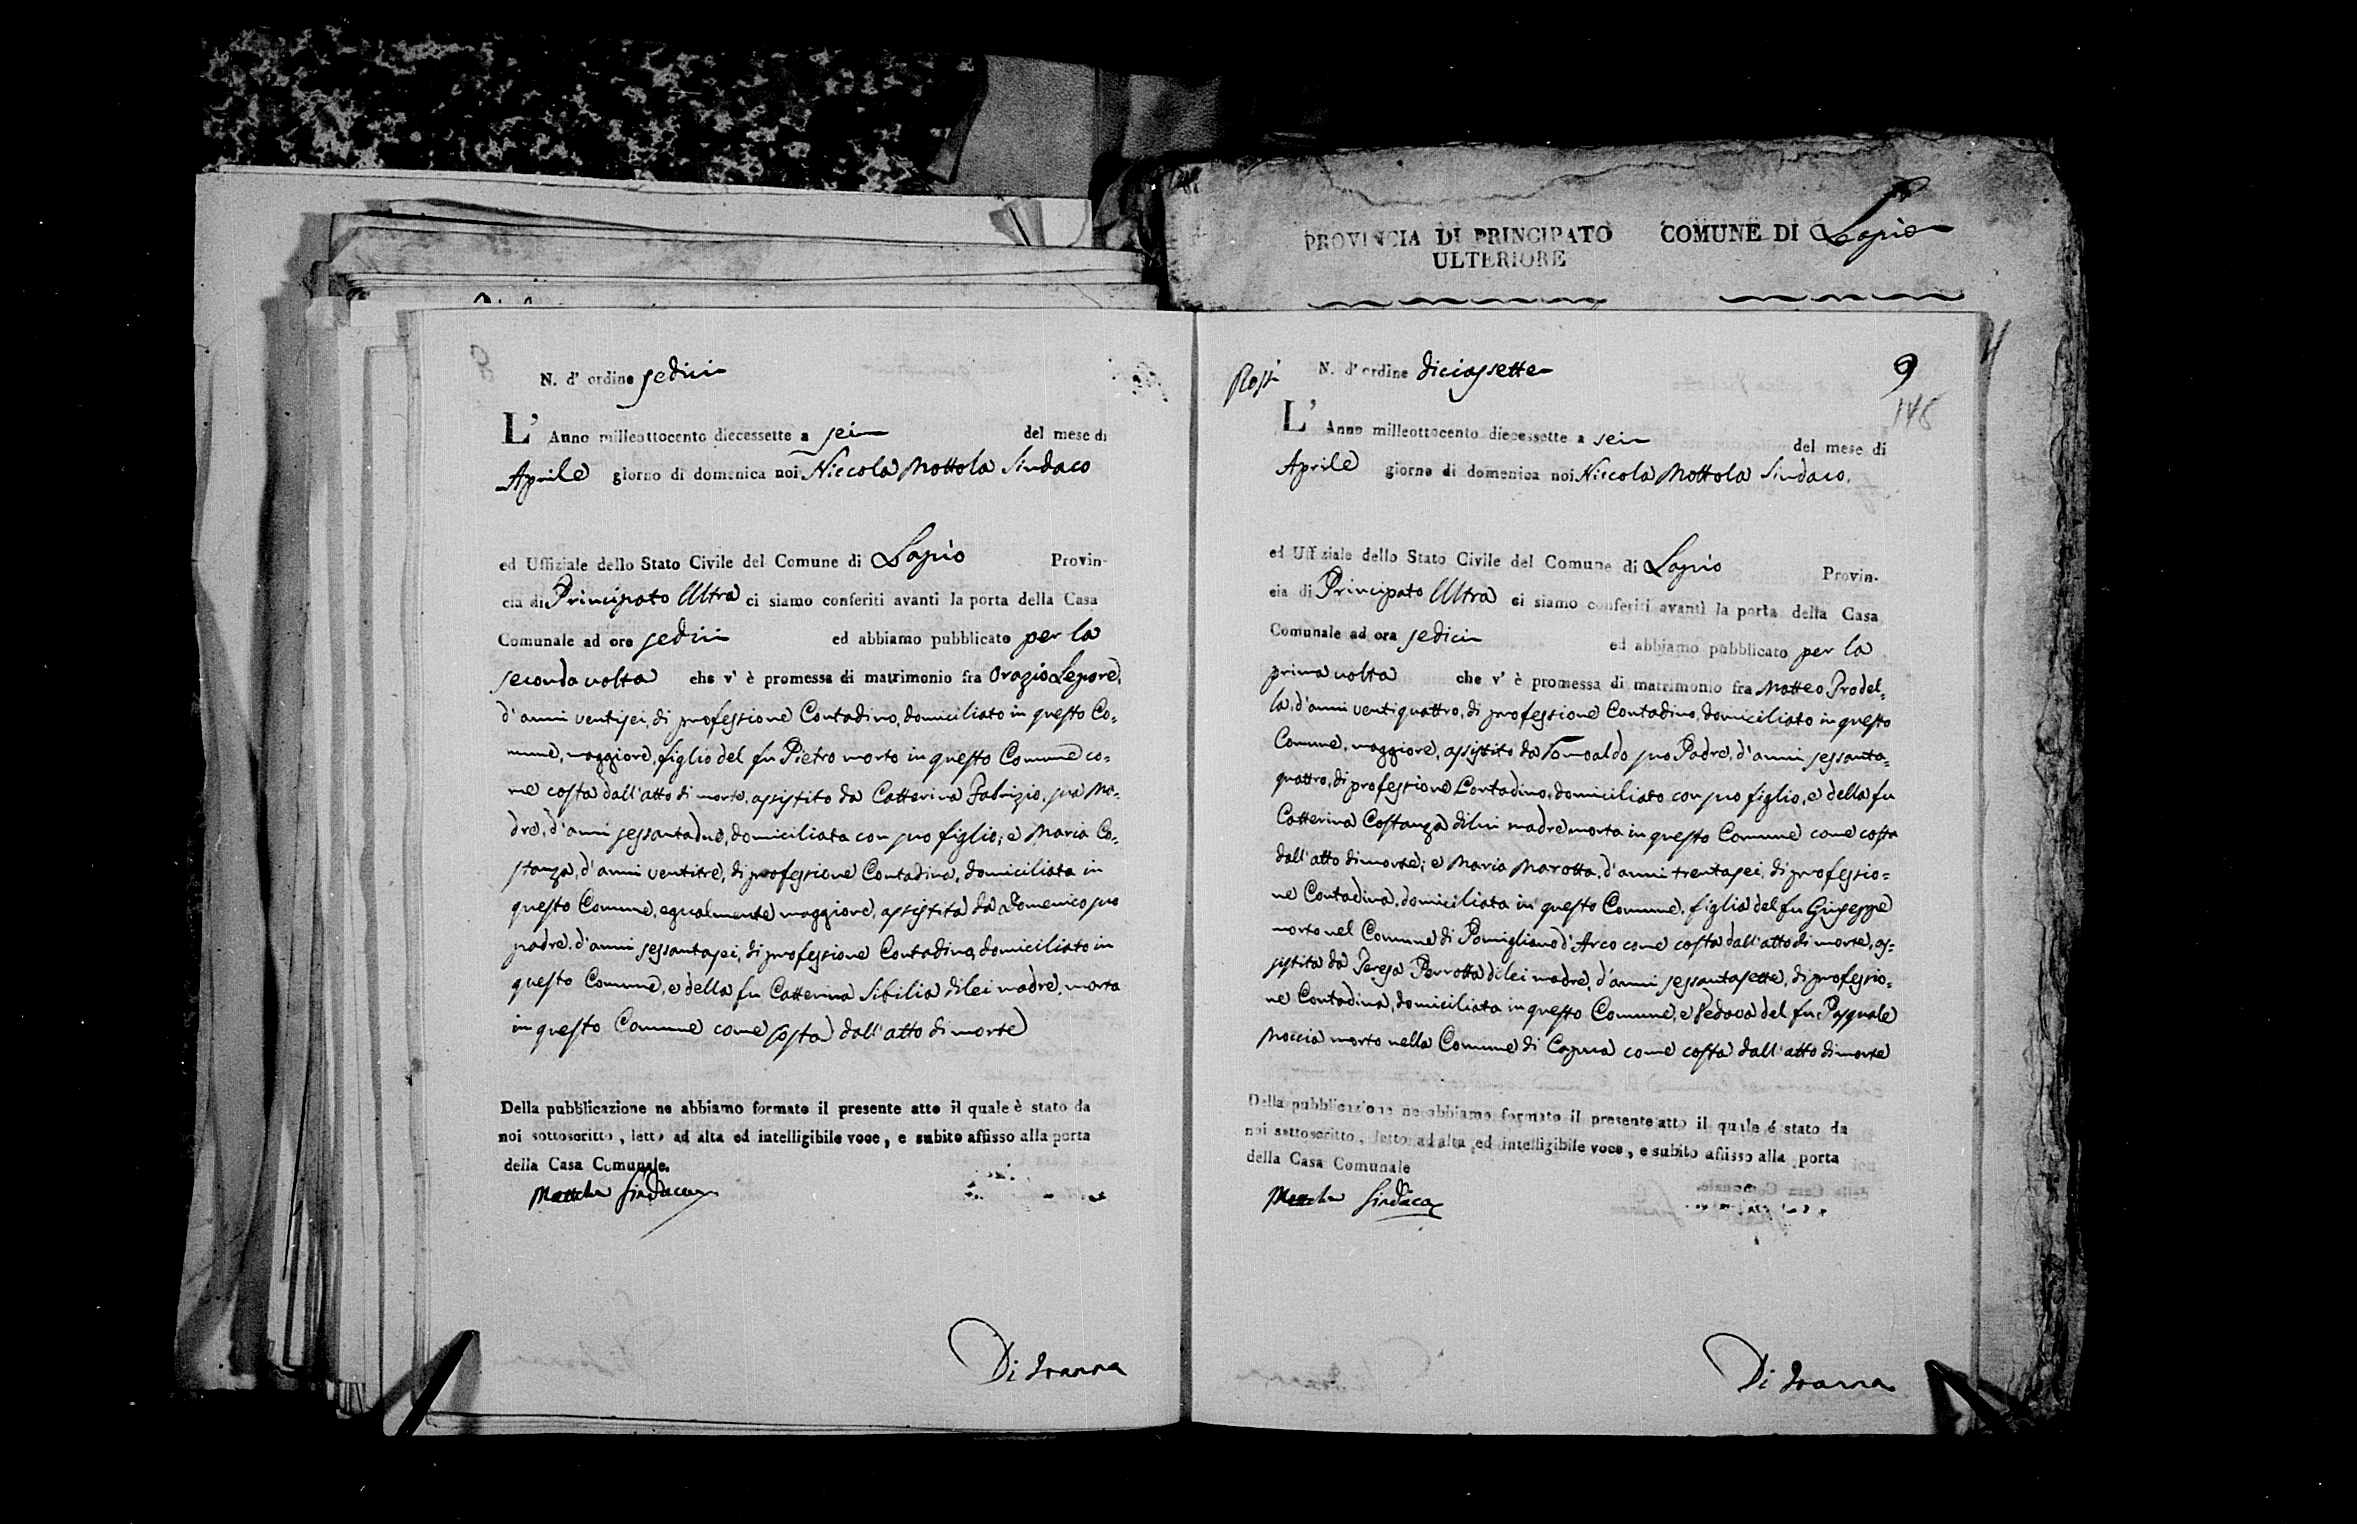 PROVINCIA DI PRINCIPATO
ULTERIORE
COMUNE DI Lapio
N. d' ordine sedici
L' Anno milleottocento diecessette a sei del mese di
Aprile giorno di domenica noi Niccola Mottola Sindaco
ed Uffiziale dello Stato Civile del Comune di Lapio Provin-
cia di Principato Ultra ci siamo conferiti avanti la porta della Casa
Comunale ad ore sedici ed abbiamo pubblicato per la
seconda volta che v' è promessa di matrimonio fra Orazio Lepore,
d'anni ventisei, di professione Contadino, domiciliato in questo Co=
mune, maggiore, figlio del fu Pietro morto in questo Comune co=
me costa dall'atto di morte, assistito da Catterina Fabrizio, sua Ma=
dre, d'anni sessantadue, domiciliata con suo figlio; e Maria Co=
stanza, d'anni ventitre, di professione Contadina, domiciliata in
questo Comune, egualmente maggiore, assistita da Domenico suo
padre, d'anni sessantasei, di professione Contadino, domiciliato in
questo Comune, e della fu Catterina Sibilia di lei madre, morta
in questo Comune come costa dall'atto di morte
Della pubblicazione ne abbiamo formato il presente atto il quale è stato da
noi sottoscritto, letto ad alta ed intelligibile voce, e subito affisso alla porta
della Casa Comunale.
Mottola Sindaco
Di Ioanna
9
148
N. d' ordine diciassette
L' Anno milleottocento diecessette a sei del mese di
Aprile giorno di domenica noi Niccola Mottola Sindaco,
ed Uffiziale dello Stato Civile del Comune di Lapio Provin-
cia di Principato Ultra ci siamo conferiti avanti la porta della Casa
Comunale ad ora sedici ed abbiamo pubblicato per la
prima volta che v' è promessa di matrimonio fra Matteo Prodel=
la, d'anni ventiquattro, di professione Contadino, domiciliato in questo
Comune, maggiore, assistito da Romoaldo suo Padre, d'anni sessanta=
quattro, di professione Contadino, domiciliato con suo figlio, e della fu
Catterina Costanza di lui madre morta in questo Comune come costa
dall'atto di morte; e Maria Marotta, d'anni trentasei, di professio=
ne Contadina, domiciliata in questo Comune, figlia del fu Giuseppe
morto nel Comune di Pomigliano d'Arco come costa dall'atto di morte, as=
sistita da Teresa Perrotta di lei madre, d'anni sessantasette, di professio=
ne Contadina, domiciliata in questo Comune, e Vedova del fu Pasquale
Moccia morto nella Comune di Capua come costa dall'atto di morte
Della pubblicazione ne abbiamo formato il presente atto il quale é stato da
noi sottoscritto, letto ad alta ed intelligibile voce, e subito affisso alla porta
della Casa Comunale
Mottola Sindaco
Di Ioanna